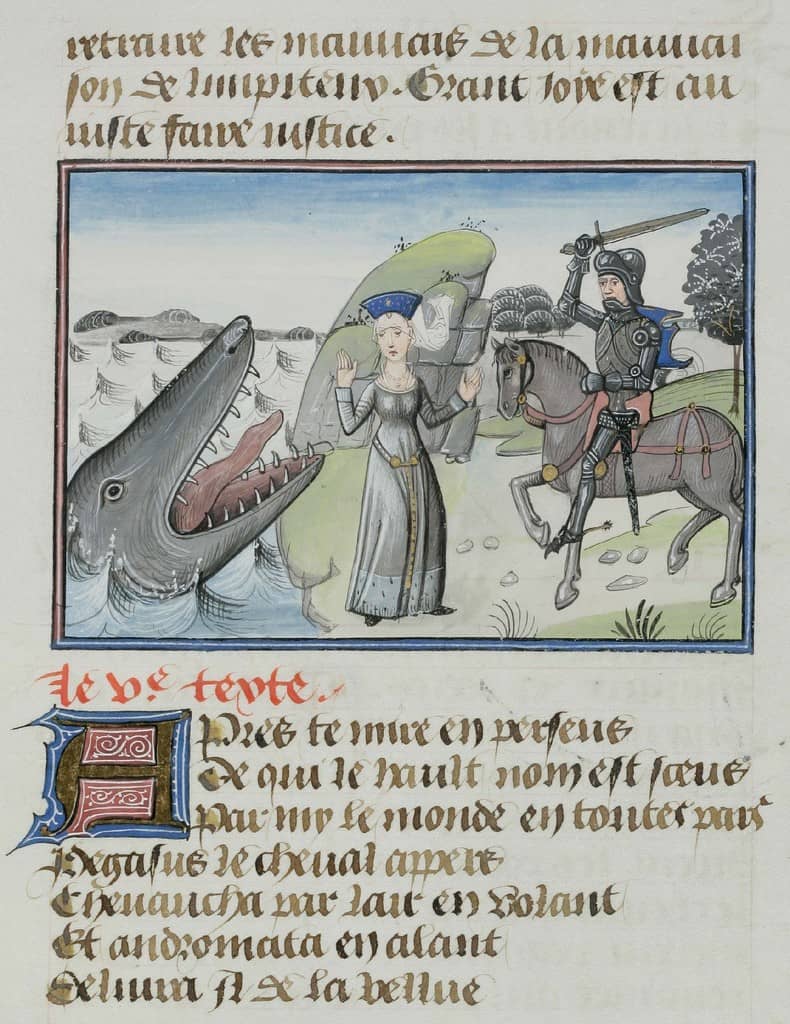 retraire les mauuais de la mauuai
son de liupiteuv. Grant ioye est au
iuste faire iustice.
Le v.e texte.
Apres te mire en perseus
De qui le hault nom est sceus
Par my le monde en toutes pars
Pegasus le cheual appers
Cheuaucha par lair en volant
Et andromata en alant
Deliura Il de la bellue